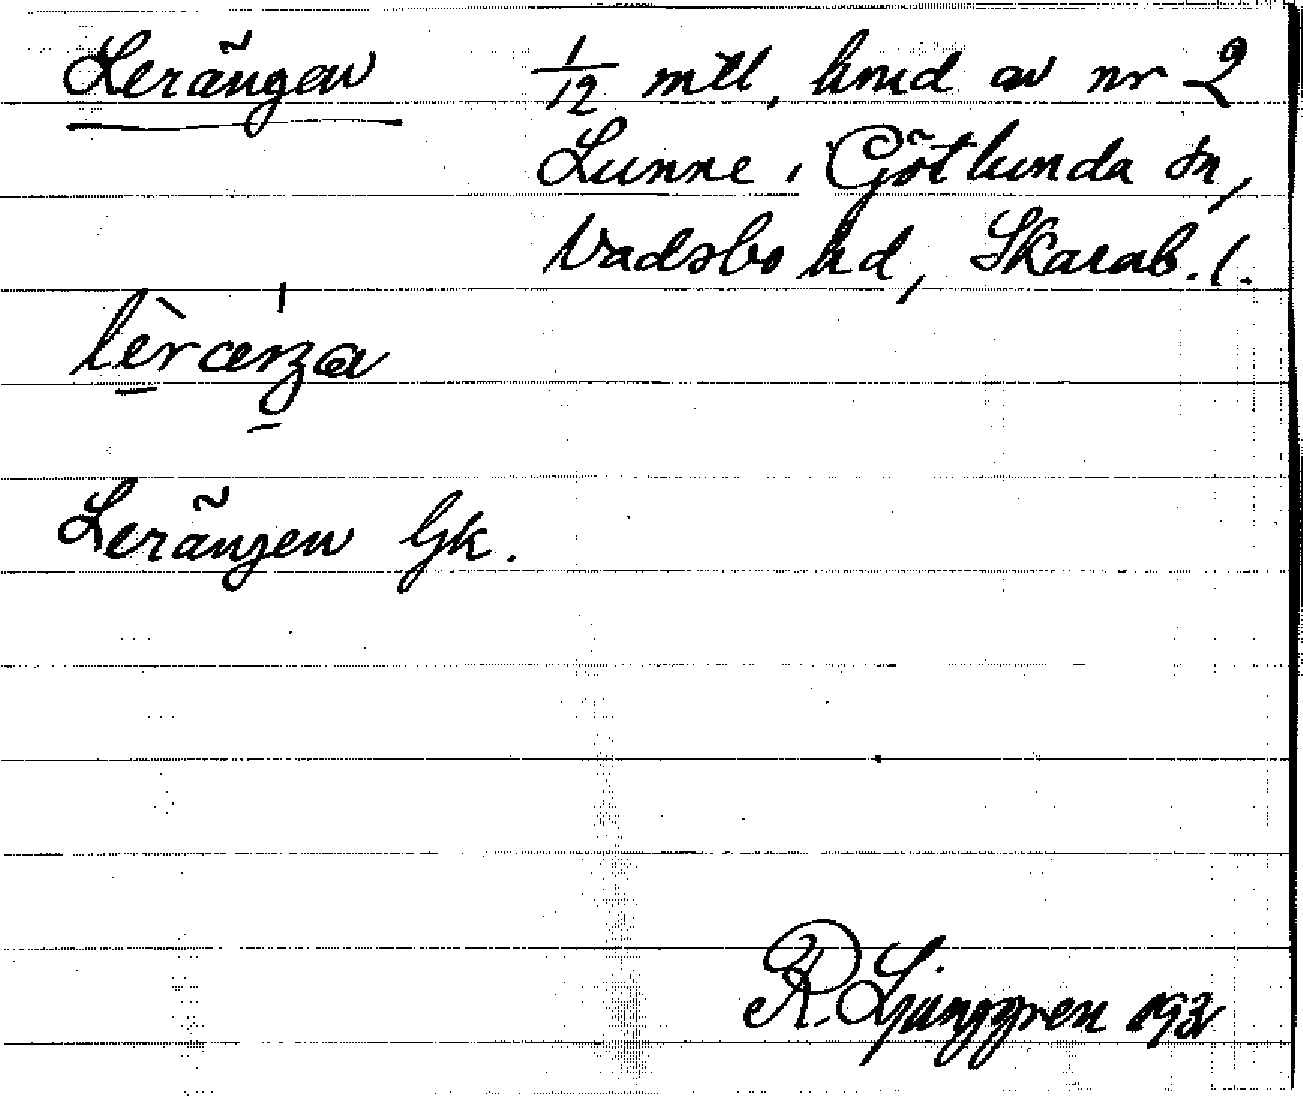 Lerängen 1/12 mtl, hmd av nr 2
Lunne i Götlunda sn,
Vadsbo hd, Skarab. l.
Lerängen Gk.
R. Ljunggren 193